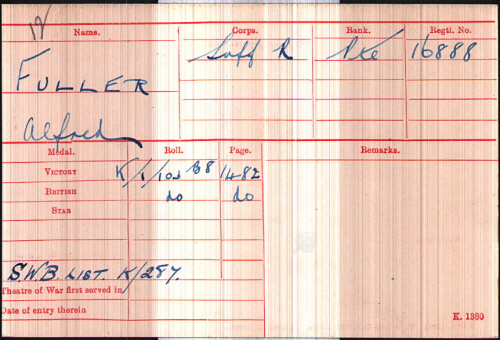 Name. Corps. Rank. Regtl. No.
FULLER Suff R Pte 16888
Alfred
Medal. Roll. Page. Remarks.
VICTORY K/1/103 B8 1482
BRITISH do do
STAR
S.W.B LIST K/287.
Theatre of War first served in
Date of entry therein
K. 1380